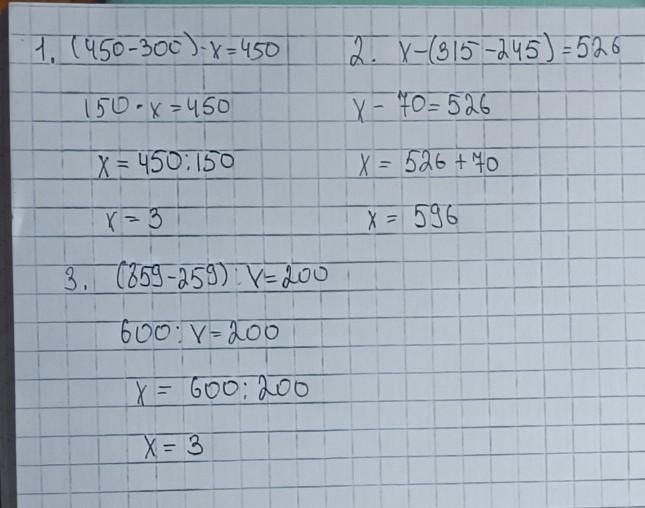 1. (450-300)·x=450
150·x=450
x=450:150
x=3
2. x-(315-245)=526
x-70=526
x=526+70
x=596
3. (859-259):x=200
600:x=200
x=600:200
x=3